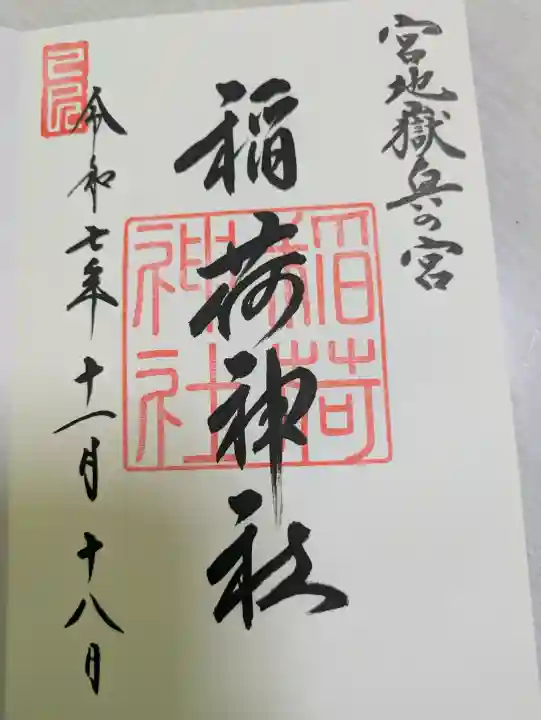 宮地獄兵の宮
稲荷神社
稲荷
神社
令和七年十一月十八日